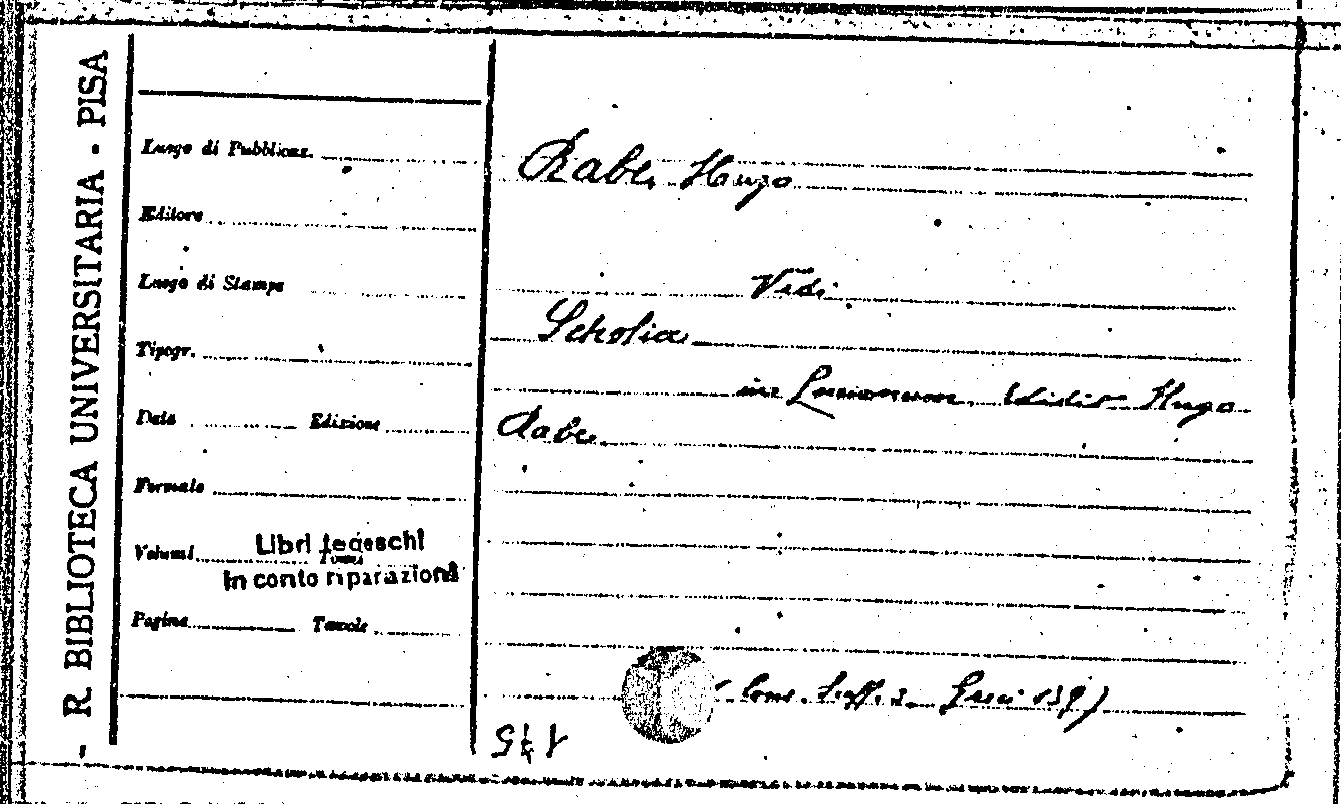 - R. BIBLIOTECA UNIVERSITARIA - PISA
Luogo di Pubblicaz.
Editore
Luogo di Stampa
Tipogr.
Data Edizione
Formato
Volumi Tomi
Libri tedeschi
In conto riparazioni
Pagine Tavole
Rabe, Hugo
Vedi
Scholia
in Lucianum. Edidit Hugo
Rabe.
Greci 139)
175